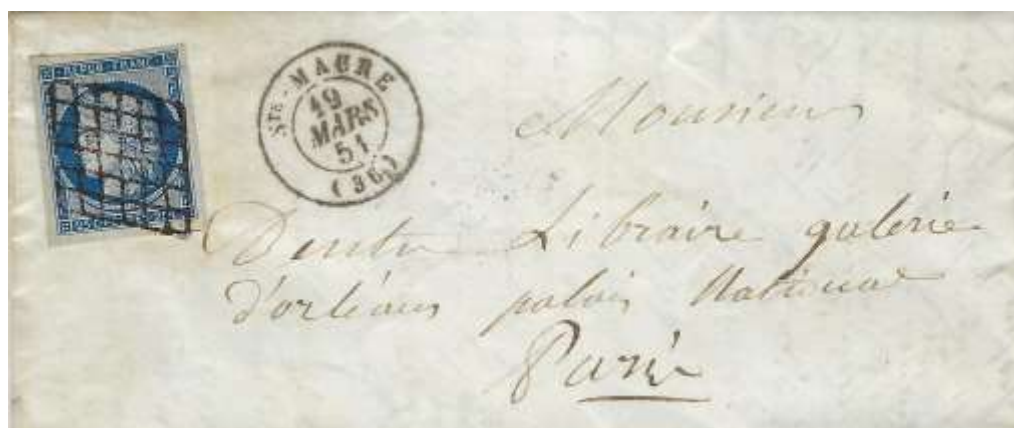 REPUB. FRANC.
STE - MAURE
19
MARS
51
(36)
Monsieur
Dentu Libraire galerie
d'orléans palais National
Paris